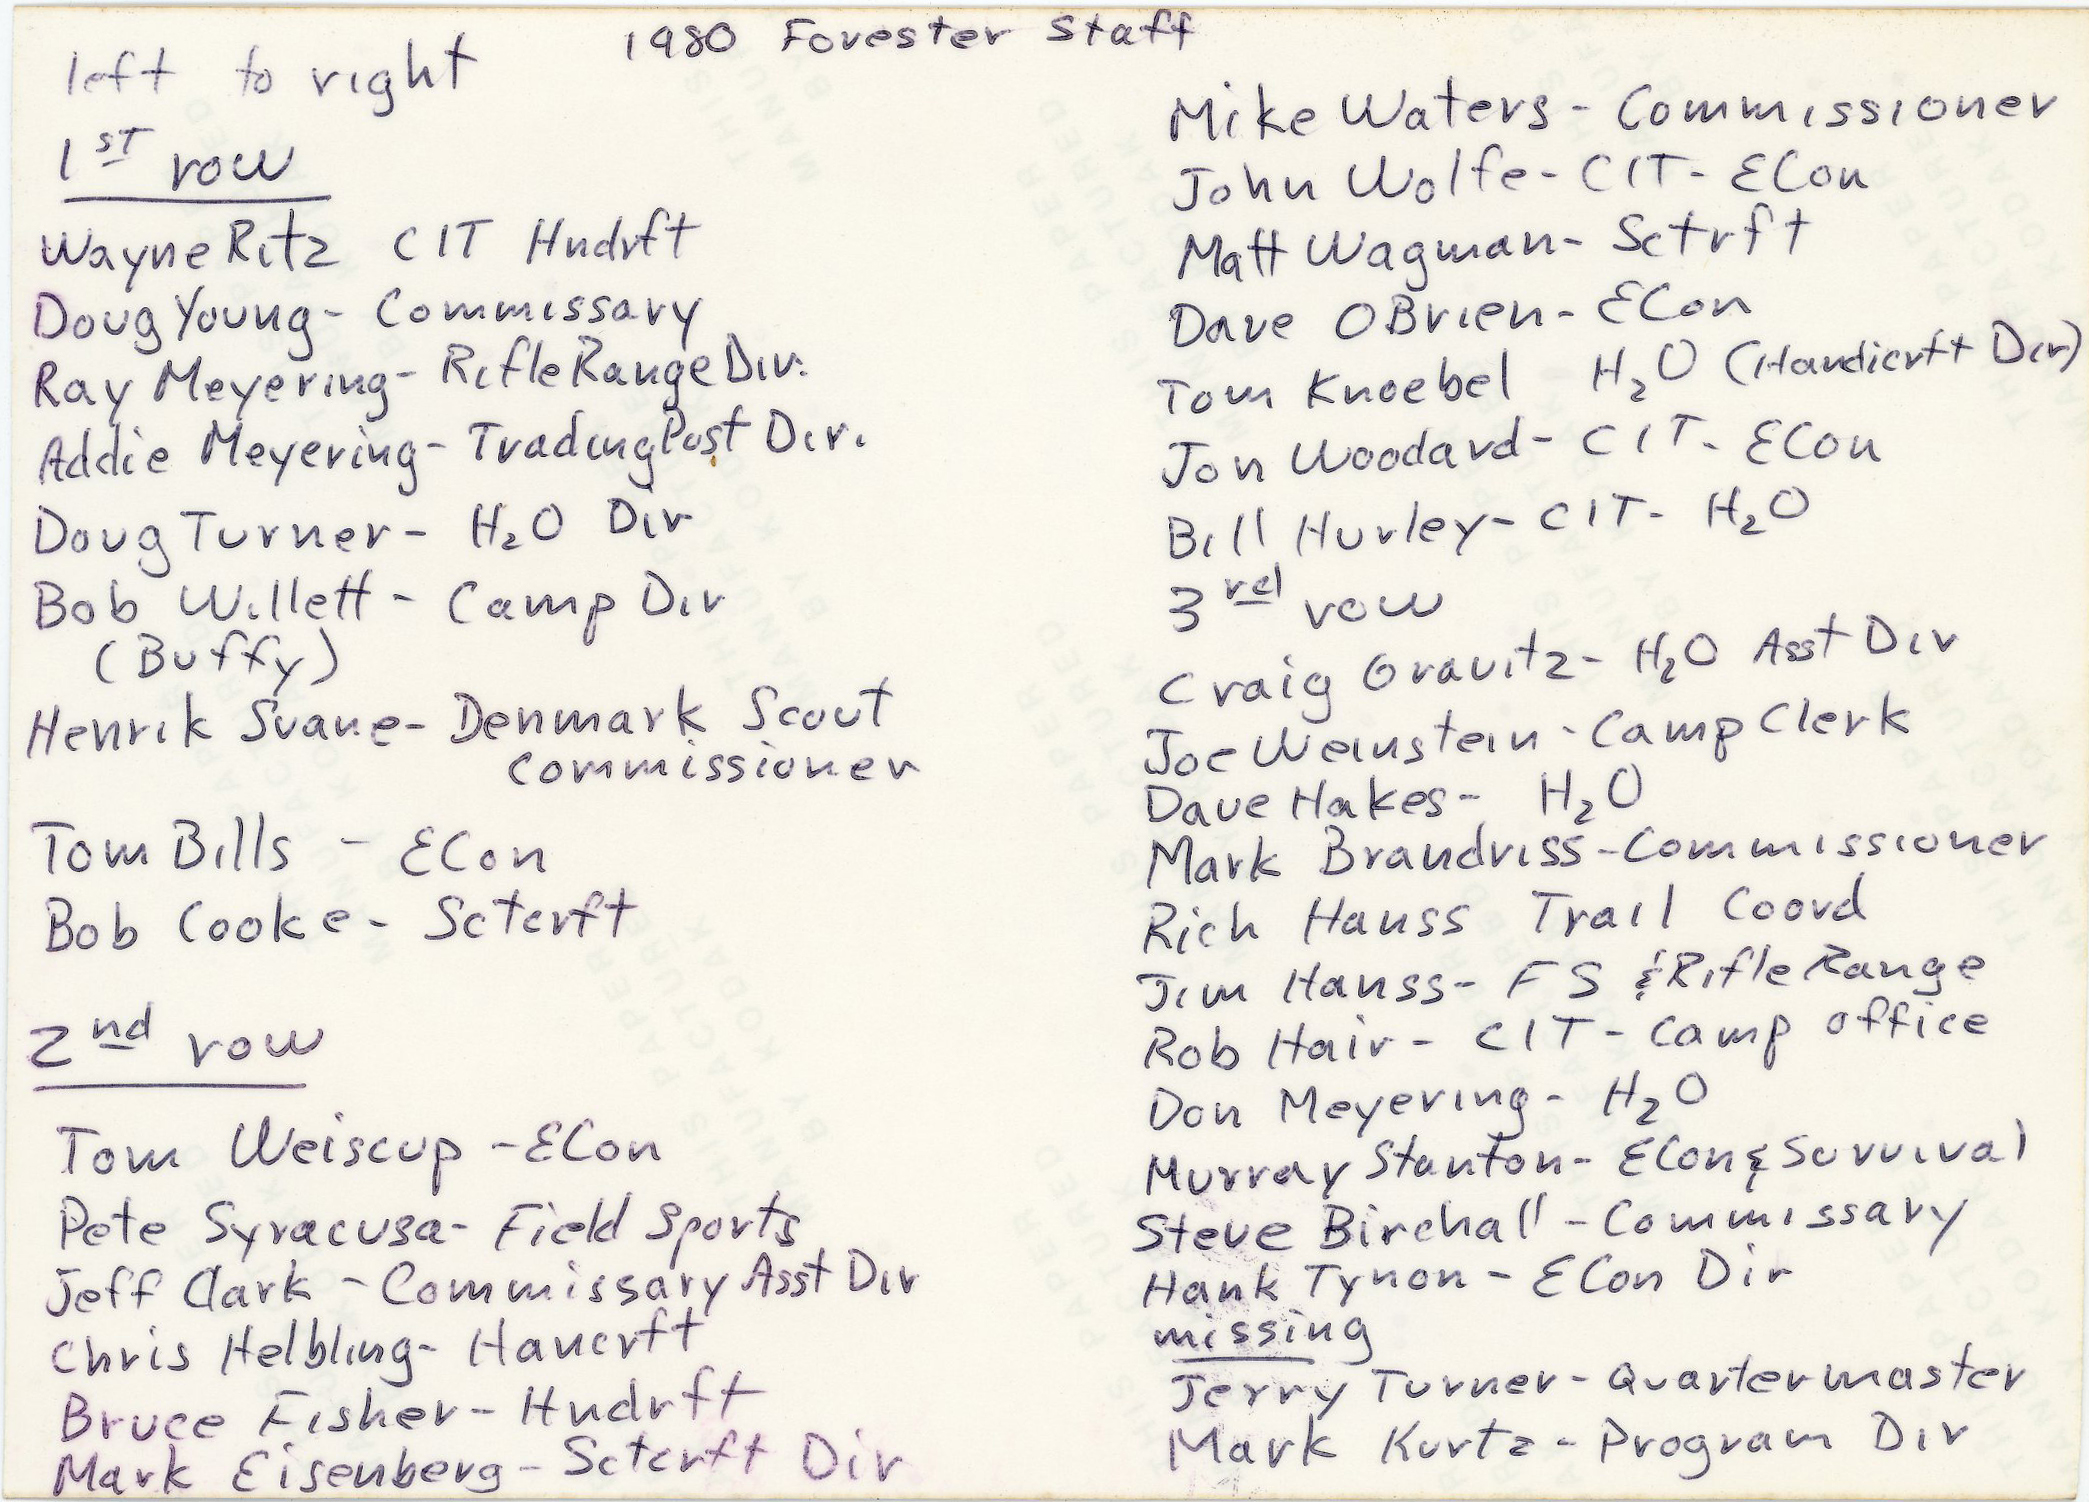 1980 Forester Staff
left to right
1st row
Wayne Ritz CIT Hndrft
Doug Young - Commissary
Ray Meyering - Rifle Range Dir.
Addie Meyering - Trading Post Dir.
Doug Turner - H2O Dir
Bob Willett - Camp Dir
(Buffy)
Henrik Svane - Denmark Scout
Commissioner
Tom Bills - ECon
Bob Cooke - Sctcrft
2nd row
Tom Weiscup - ECon
Pete Syracusa - Field Sports
Jeff Clark - Commissary Asst Dir
Chris Helbling - Hancrft
Bruce Fisher - Hndrft
Mark Eisenberg - Sctcrft Dir
Mike Waters - Commissioner
John Wolfe - CIT - ECon
Matt Wagman - Sctrft
Dave OBrien - ECon
Tom Knoebel H2O (Handicrft Dir)
Jon Woodard - CIT - ECon
Bill Hurley - CIT - H2O
3rd row
Craig Gravitz - H2O Asst Dir
Joe Weinstein - Camp Clerk
Dave Hakes - H2O
Mark Brandriss - Commissioner
Rich Hanss Trail Coord
Jim Hanss - FS & Rifle Range
Rob Hair - CIT - Camp office
Don Meyering - H2O
Murray Stanton - ECon & Survival
Steve Birchall - Commissary
Hank Tynon - ECon Dir
missing
Jerry Turner - Quartermaster
Mark Kurtz - Program Dir